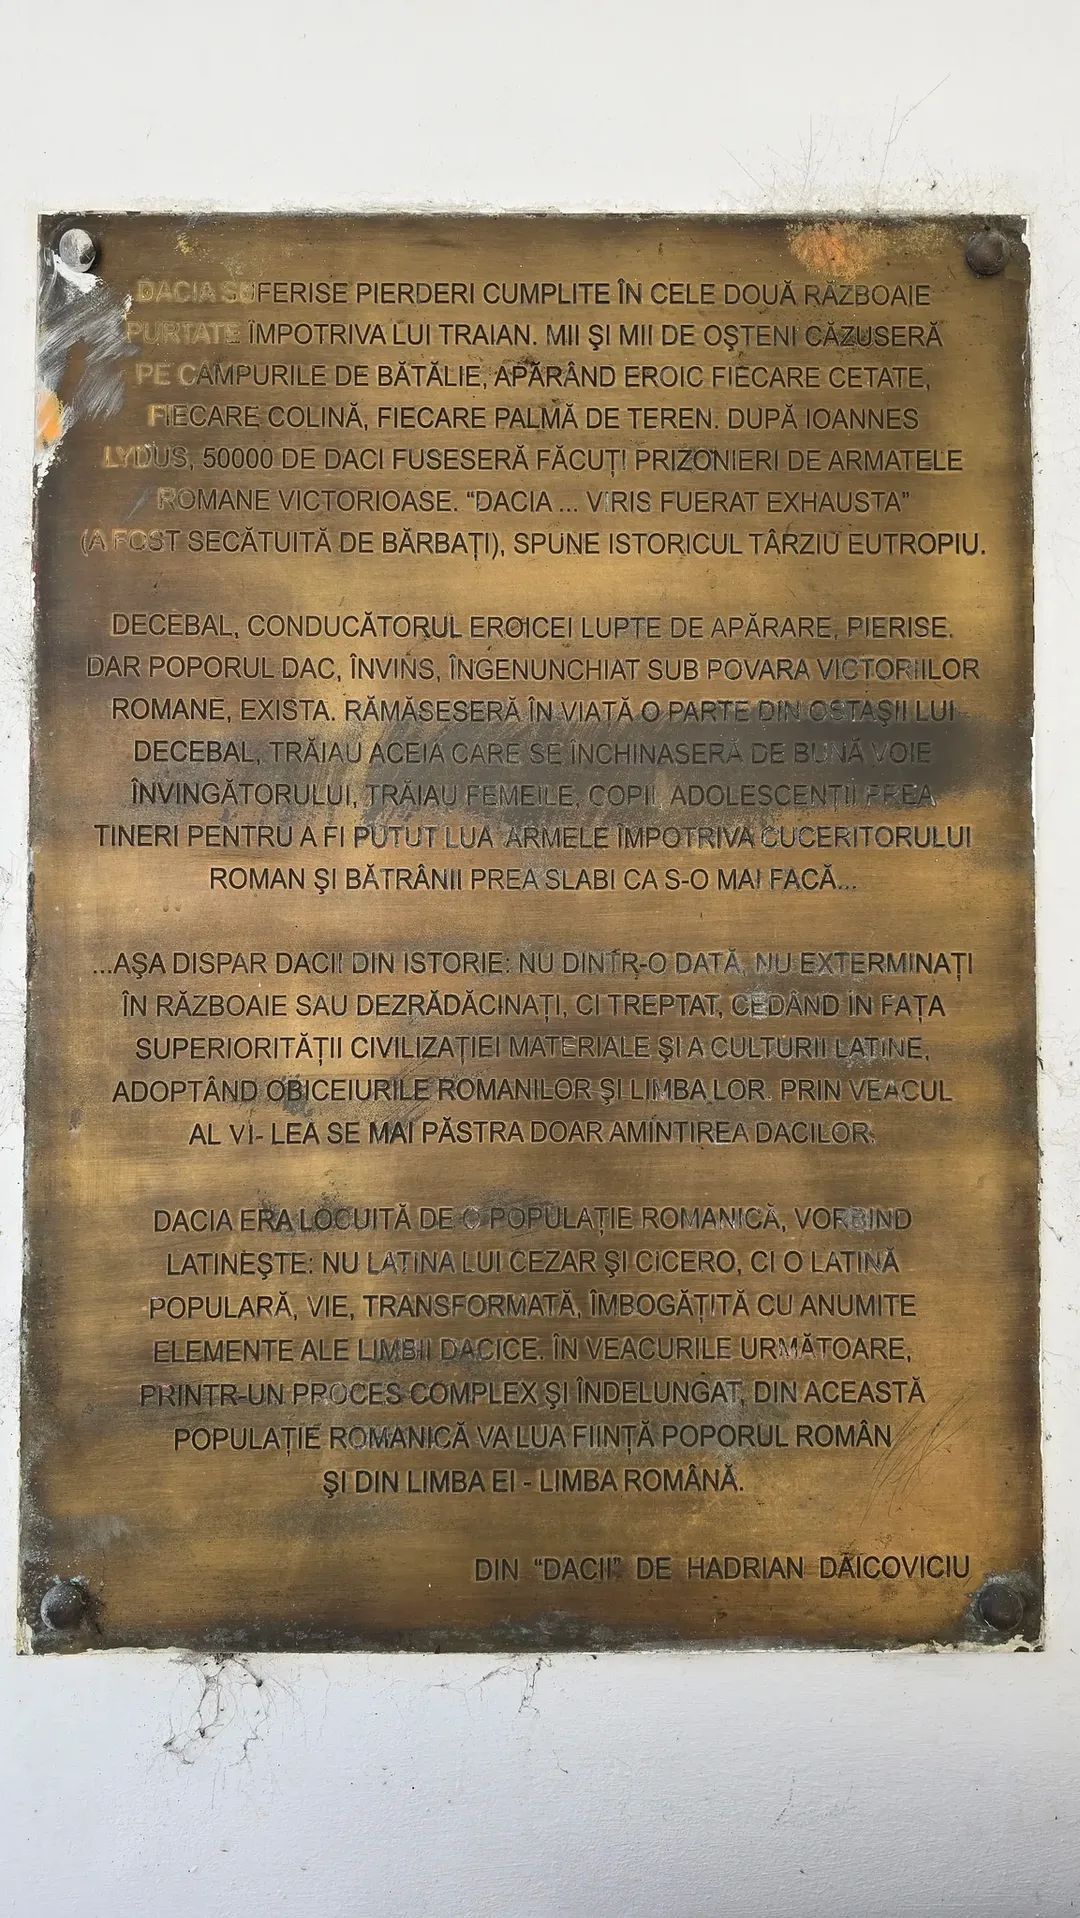 DACIA SUFERISE PIERDERI CUMPLITE ÎN CELE DOUĂ RĂZBOAIE
PURTATE ÎMPOTRIVA LUI TRAIAN. MII ŞI MII DE OŞTENI CĂZUSERĂ
PE CÂMPURILE DE BĂTĂLIE, APĂRÂND EROIC FIECARE CETATE,
FIECARE COLINĂ, FIECARE PALMĂ DE TEREN. DUPĂ IOANNES
LYDUS, 50000 DE DACI FUSESERĂ FĂCUŢI PRIZONIERI DE ARMATELE
ROMANE VICTORIOASE. “DACIA ... VIRIS FUERAT EXHAUSTA”
(A FOST SECĂTUITĂ DE BĂRBAŢI), SPUNE ISTORICUL TÂRZIU EUTROPIU.
DECEBAL, CONDUCĂTORUL EROICEI LUPTE DE APĂRARE, PIERISE.
DAR POPORUL DAC, ÎNVINS, ÎNGENUNCHIAT SUB POVARA VICTORIILOR
ROMANE, EXISTA. RĂMĂSESERĂ ÎN VIAŢĂ O PARTE DIN OSTAŞII LUI
DECEBAL, TRĂIAU ACEIA CARE SE ÎNCHINASERĂ DE BUNĂ VOIE
ÎNVINGĂTORULUI, TRĂIAU FEMEILE, COPII, ADOLESCENŢII PREA
TINERI PENTRU A FI PUTUT LUA ARMELE ÎMPOTRIVA CUCERITORULUI
ROMAN ŞI BĂTRÂNII PREA SLABI CA S-O MAI FACĂ...
...AŞA DISPAR DACII DIN ISTORIE: NU DINTR-O DATĂ, NU EXTERMINAŢI
ÎN RĂZBOAIE SAU DEZRĂDĂCINAŢI, CI TREPTAT, CEDÂND ÎN FAŢA
SUPERIORITĂŢII CIVILIZAŢIEI MATERIALE ŞI A CULTURII LATINE,
ADOPTÂND OBICEIURILE ROMANILOR ŞI LIMBA LOR. PRIN VEACUL
AL VI- LEA SE MAI PĂSTRA DOAR AMINTIREA DACILOR.
DACIA ERA LOCUITĂ DE O POPULAŢIE ROMANICĂ, VORBIND
LATINEŞTE: NU LATINA LUI CEZAR ŞI CICERO, CI O LATINĂ
POPULARĂ, VIE, TRANSFORMATĂ, ÎMBOGĂŢITĂ CU ANUMITE
ELEMENTE ALE LIMBII DACICE. ÎN VEACURILE URMĂTOARE,
PRINTR-UN PROCES COMPLEX ŞI ÎNDELUNGAT, DIN ACEASTĂ
POPULAŢIE ROMANICĂ VA LUA FIINŢĂ POPORUL ROMÂN
ŞI DIN LIMBA EI - LIMBA ROMÂNĂ.
DIN “DACII” DE HADRIAN DAICOVICIU